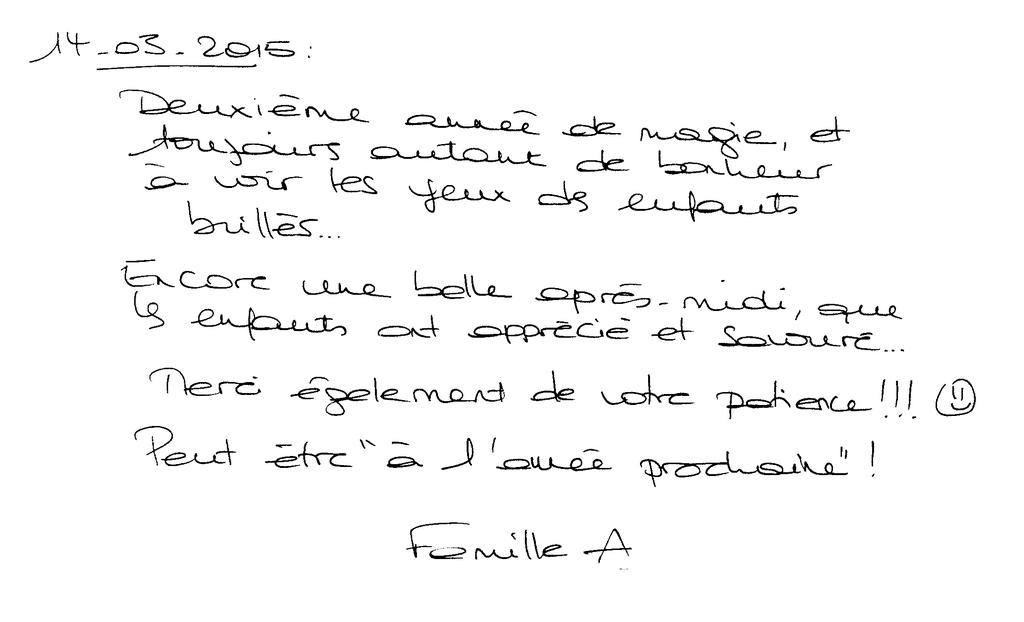 14-03-2015:
Deuxième année de magie, et
toujours autant de bonheur
à voir les yeux des enfants
brillés...
Encore une belle après-midi, que
les enfants ont apprécié et savouré...
Merci également de votre patience!!! ☺
Peut être "à l'année prochaine"!
Famille A